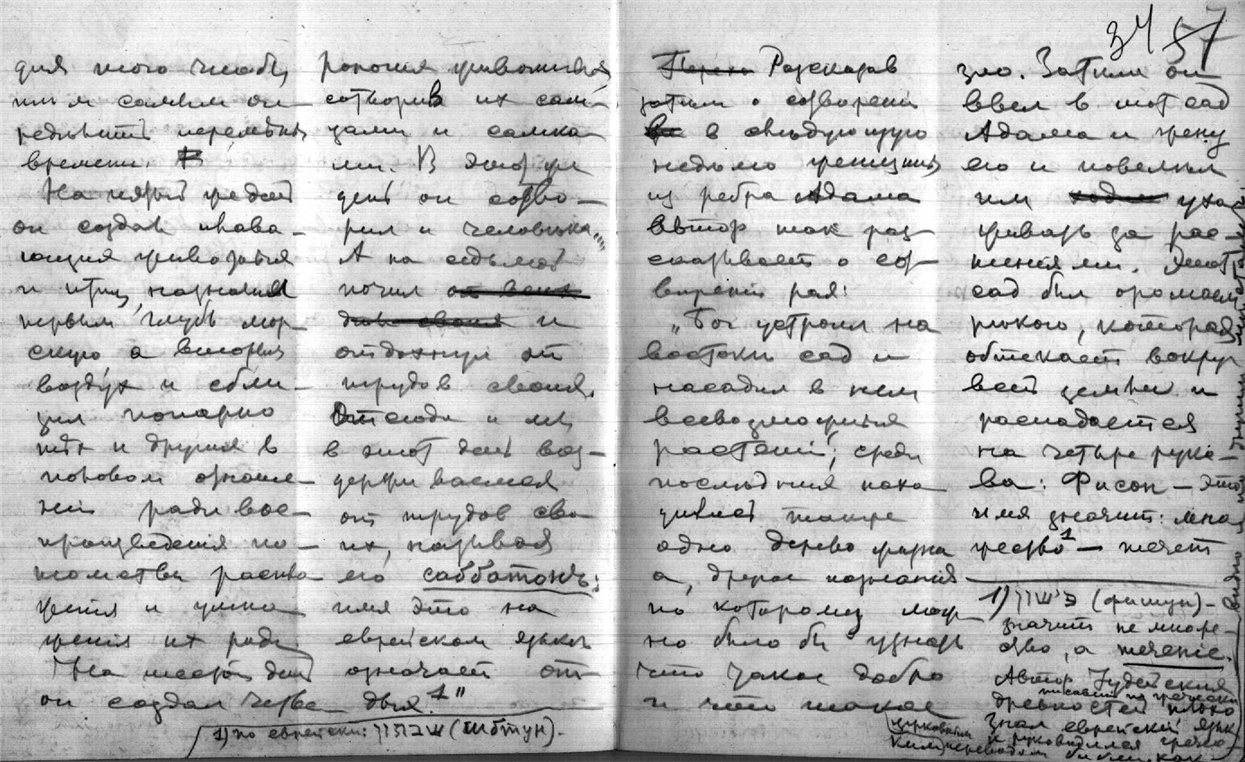 для того чтобы
этим самым он
ределить перемены
времени.
На пятый же день
он создал плава-
ющия животныя
и птиц, назначил
первым глубь мор-
скую а вторым
воздух и соеди-
нил попарно
тех и других в
половом отноше-
нии ради вос-
произведения по-
томства распло-
жения и умно-
жения их рода
На шестой день
он создал четве-
роногия животныя
сотворив их сам-
цами и самка-
ми. В этот же
день он сотво-
рил и человека
А на седьмой
почил от всех
дел своих и
отдохнул от
трудов своих.
Отсюда и мы
в этот день воз-
держиваемся
от трудов сво-
их, называя
его саббатонъ;
имя это на
еврейском языке
означает от-
дых 1"
1) по еврейски: שבתון (шбтун).
34 57
Рассказав
затем о создании
в следующую
неделю женщины
из ребра Адама
автор так рас-
сказывает о сот-
ворении рая:
„Бог устроил на
востоке сад и
насадил в нем
всевозможныя
растения; среди
последних нахо
дилось также
одно дерево жизни
а, другое познания
по которому мож-
но было бы узнать
что такое добро
и что такое
зло. Затем он
ввел в этот сад
Адама и жену
его и повелел
им уха
живать за рас-
тениями. Этот
сад был орошаем
рекою, которая
обтекает вокруг
всей земли и
распадается
на четыре рука-
ва: Фисон — это
имя значит: множ
чество 1 — течет
1) פישון (фишун) -
значит не множе-
ство, а течение.
Автор Іудейских
древностей плохо
писавший по гречески
знал еврейский язык
и руководился грече-